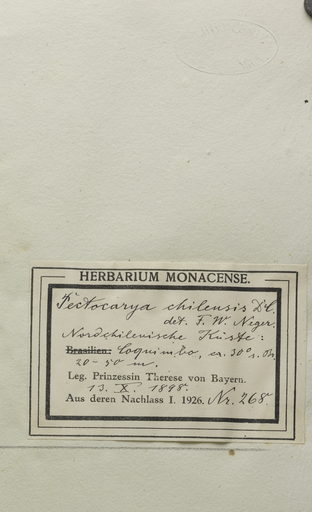 HERBARIUM MONACENSE.
Pectocarya chilensis DC.
det. F. W. Neger.
Nordchilenische Küste:
Brasilien: Coquimbo, ca. 30° s. Br.
20-50 m.
Leg. Prinzessin Therese von Bayern.
13. X. 1898.
Aus deren Nachlass I. 1926. Nr. 268.